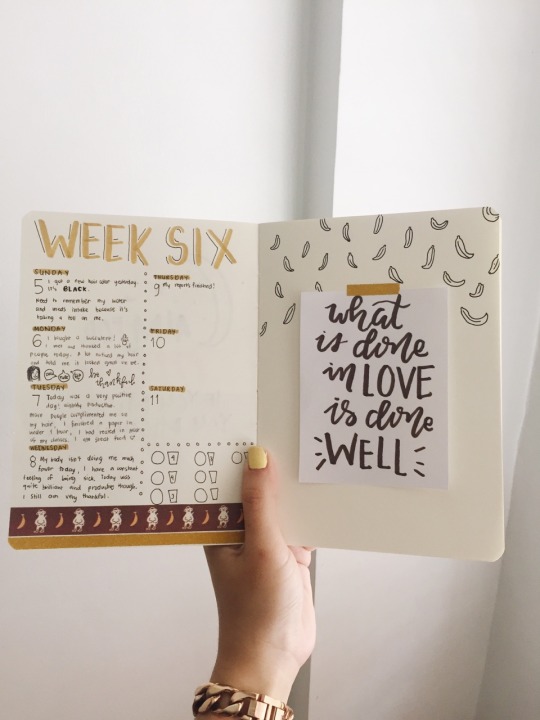 WEEK SIX
SUNDAY
5 I got a new hair color yesterday.
It's BLACK.
need to remember my water
and meals intake because it's
taking a toll on me.
MONDAY
6 I bought a succulent!
people today. A lot noticed my hair
and told me it looked great on me.
be thankful
TUESDAY
7 Today was a very positive
day!
more people complimented me on
my hair. I finished a paper in
under 1 hour, I had
of my classes. I am great
WEDNESDAY
8 My body isn't doing me much
favor today, I have a
feeling of being sick. Today was
quite brilliant and productive though.
I still am very thankful.
THURSDAY
9 My report's finished!
FRIDAY
10
SATURDAY
11
what
is done
in LOVE
is done
WELL